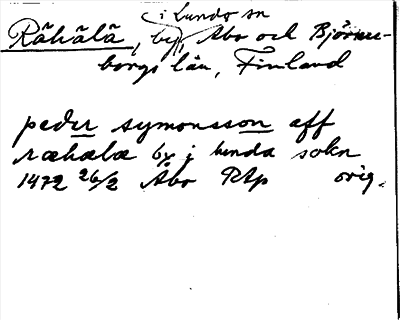 i Lundo sn
Rähälä, by, Åbo och Björne-
borgs län, Finland
peder symonsson aff
ræhælæ by i lunda sokn
1472 26/2 Åbo RAp orig.